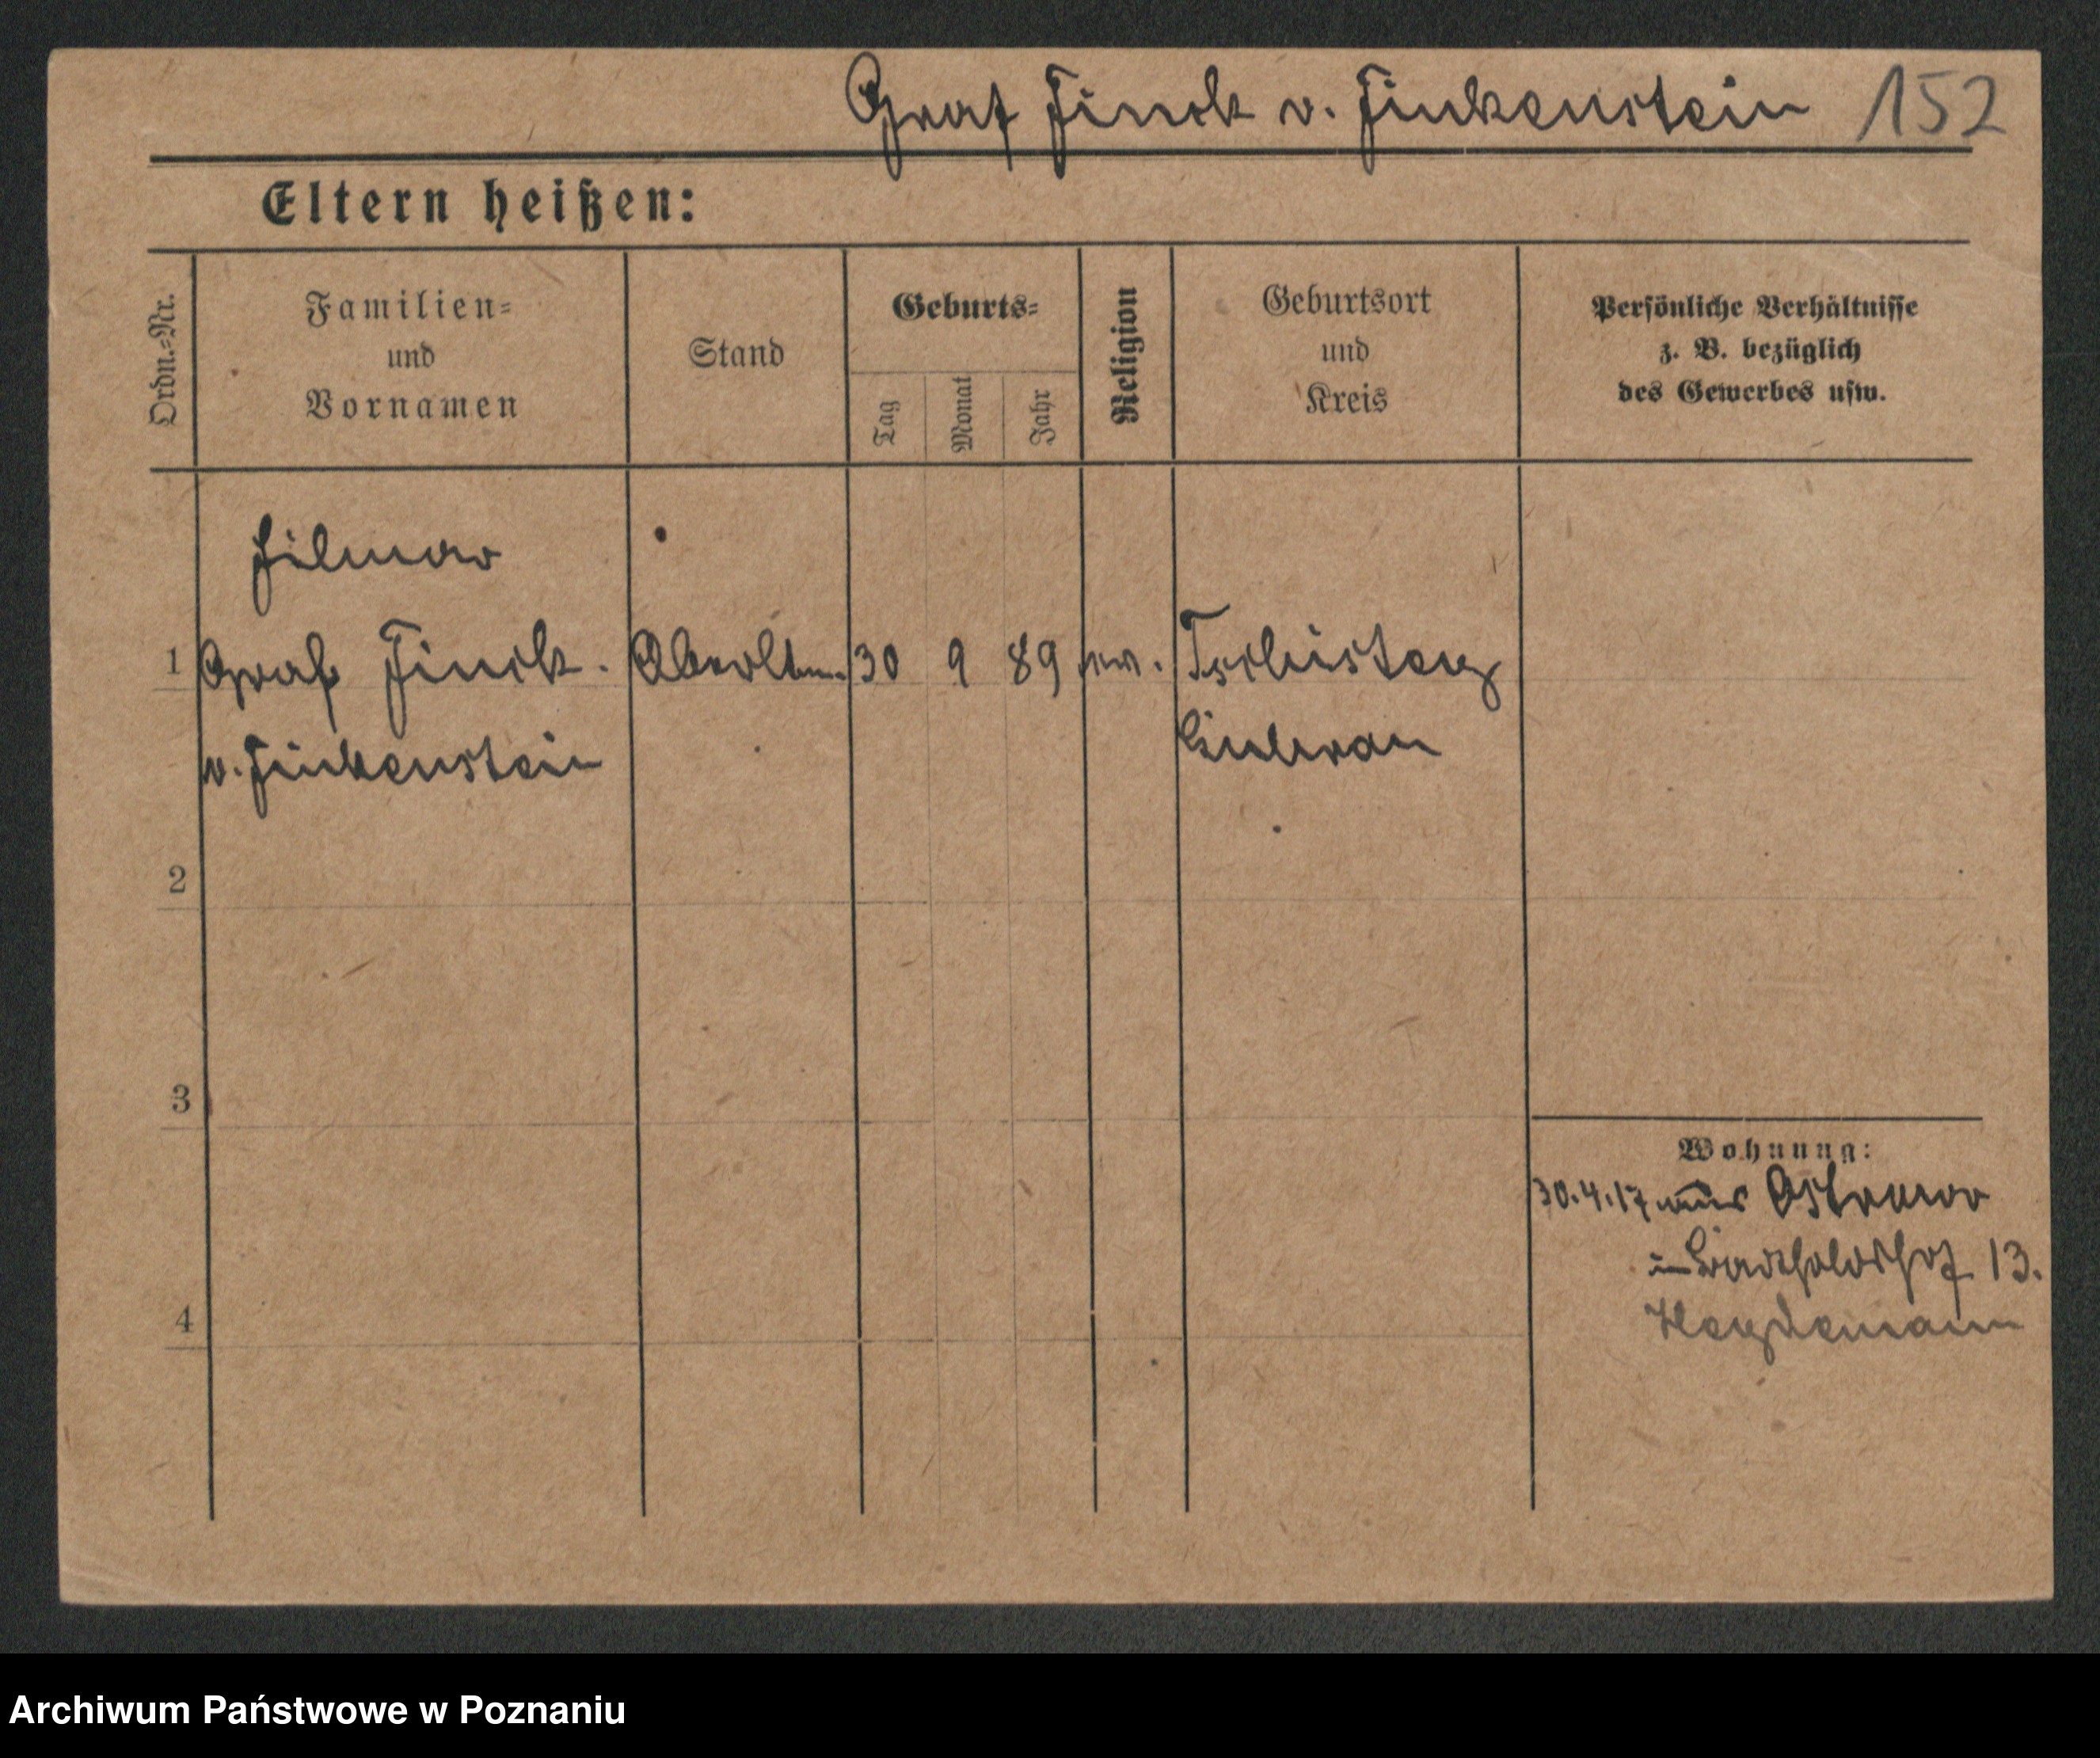 Graf Finck v. Finkenstein 152
Eltern heißen:
Ordn.-Nr.
Familien-
und
Vornamen
Stand
Geburts-
Tag
Monat
Jahr
Religion
Geburtsort
und
Kreis
Persönliche Verhältnisse
z. B. bezüglich
des Gewerbes usw.
Hilmar
1 Graf Finck. 30 9 89 ev. Tschistey
v. Finkenstein Guhrau
2
3
4
Wohnung:
30.4.17 aus Ostrowo
in 13.
Heydemann
Archiwum Państwowe w Poznaniu